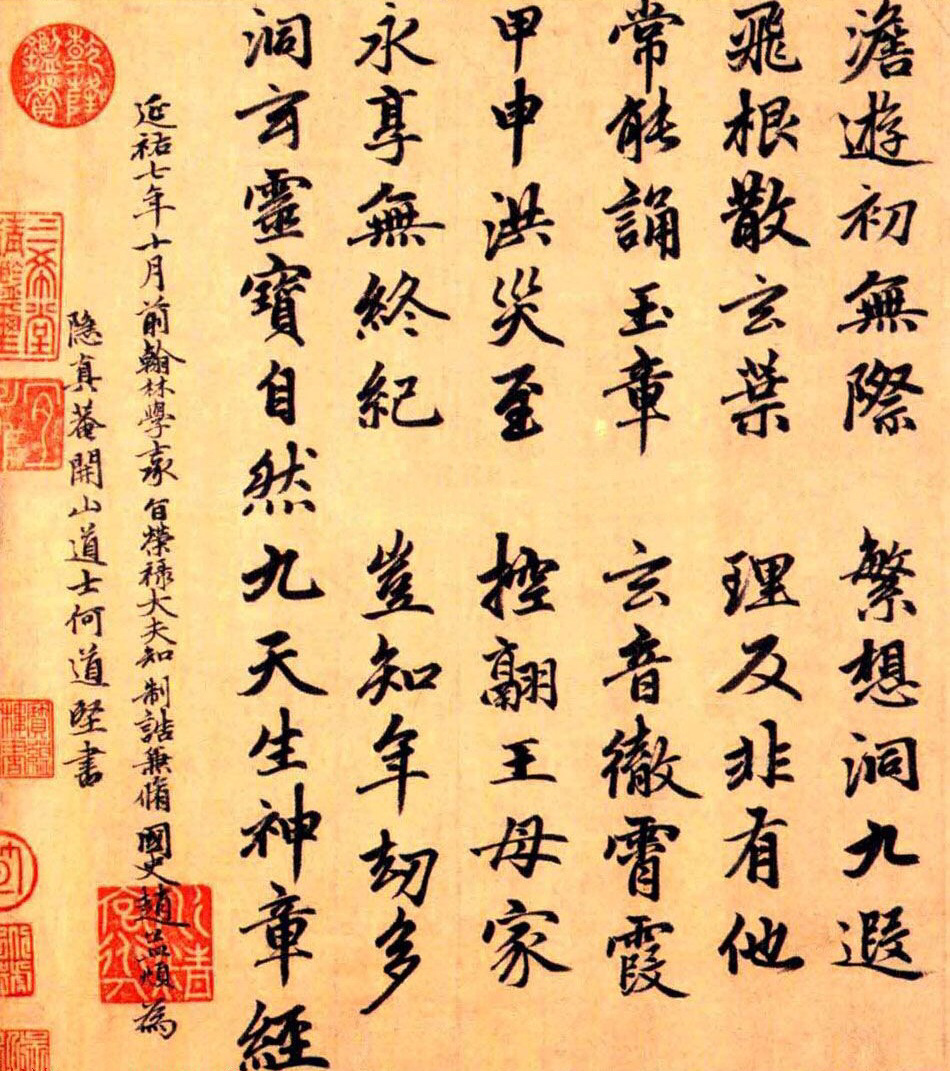 澹遊初無際 繁想洞九遐
飛根散玄葉 理反非有他
常能誦玉章 玄音徹霄霞
甲申洪災至 控翮王母家
永享無終紀 豈知年劫多
洞玄靈寶自然九天生神章經
延祐七年十月前翰林學承旨榮祿大夫知制誥兼脩國史趙孟頫為
隱真菴開山道士何道堅書
乾隆鑑賞
三希堂精鑑璽